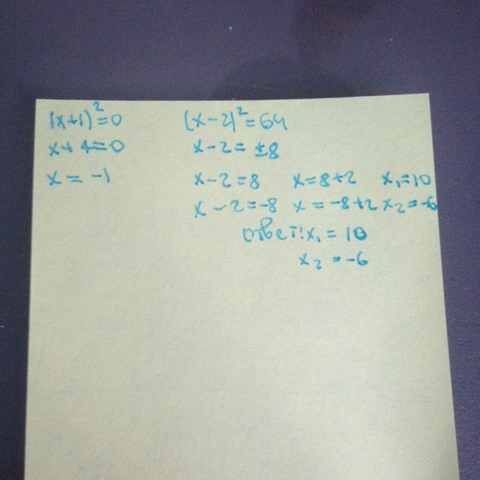 (x+1)²=0
x+1=0
x = -1
(x-2)²=64
x-2= ±8
x-2=8 x=8+2 x₁=10
x-2=-8 x=-8+2 x₂=-6
ответ: x₁ = 10
x₂ = -6